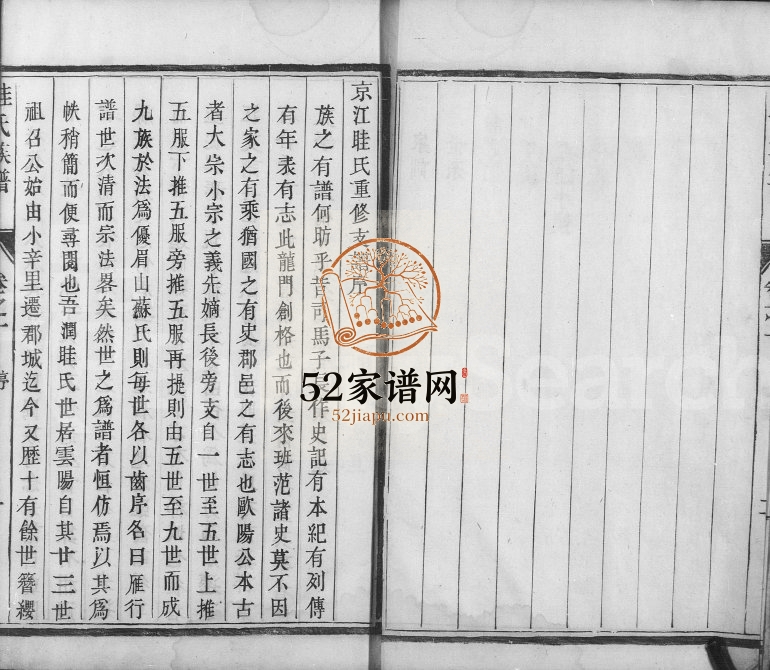 京江眭氏重修支譜序
族之有譜何昉乎昔司馬子作史記有本紀有列傳
有年表有志此龍門創格也而後來班范諸史莫不因
之家之有乘猶國之有史郡邑之有志也歐陽公本古
者大宗小宗之義先嫡長後旁支自一世至五世上推
五服下推五服旁推五服再提則由五世至九世而成
九族於法爲優眉山蘇氏則每世各以齒序各曰雁行
譜世次清而宗法畧矣然世之爲譜者恒仿焉以其爲
帙稍簡而便尋閱也吾潤眭氏世居雲陽自其廿三世
祖召公始由小辛里遷郡城迄今又歷十有餘世簪纓
眭氏族譜
卷之一
序
52家谱网
52jiapu.com